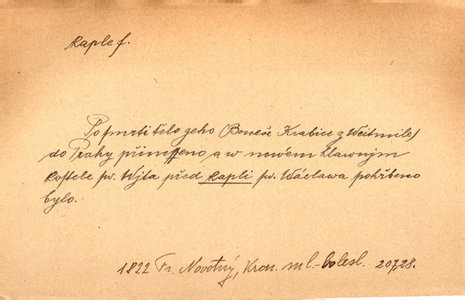 kaple f.
Po smrti tělo geho (Beneše Krabice z Weitmile)
do Prahy přineſſeno a w nowém hlawnjm
kostele sw. Wjta před kaplj sw. Wáclawa pohřbeno
bylo.
1822 Fr. Novotný, Kron. ml.-bolesl. 207,28.